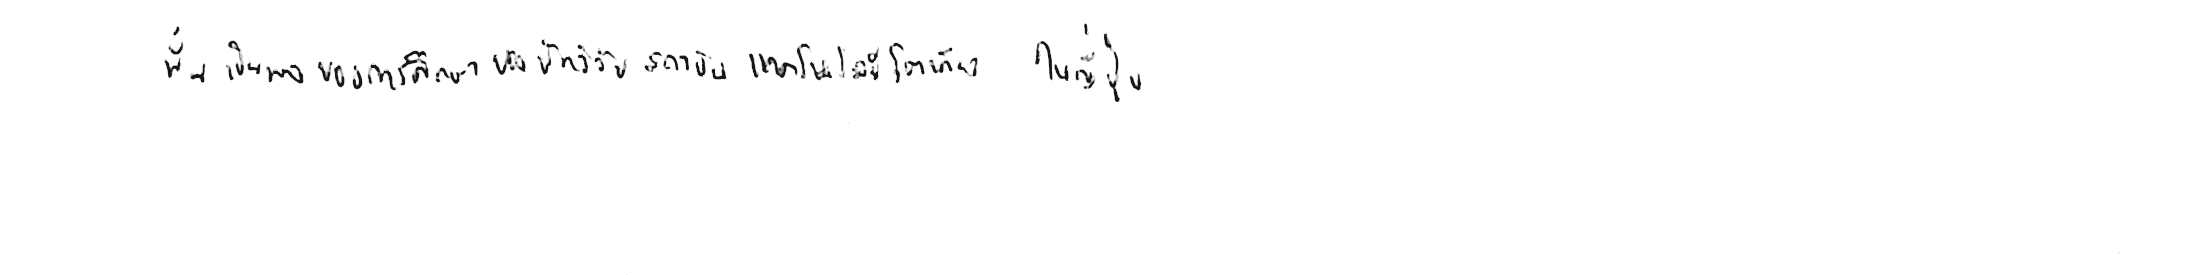 นั้น เป็นผลของการศึกษาของนักวิจัย สถาบันเทคโนโลยีโตเกียว ในญี่ปุ่น